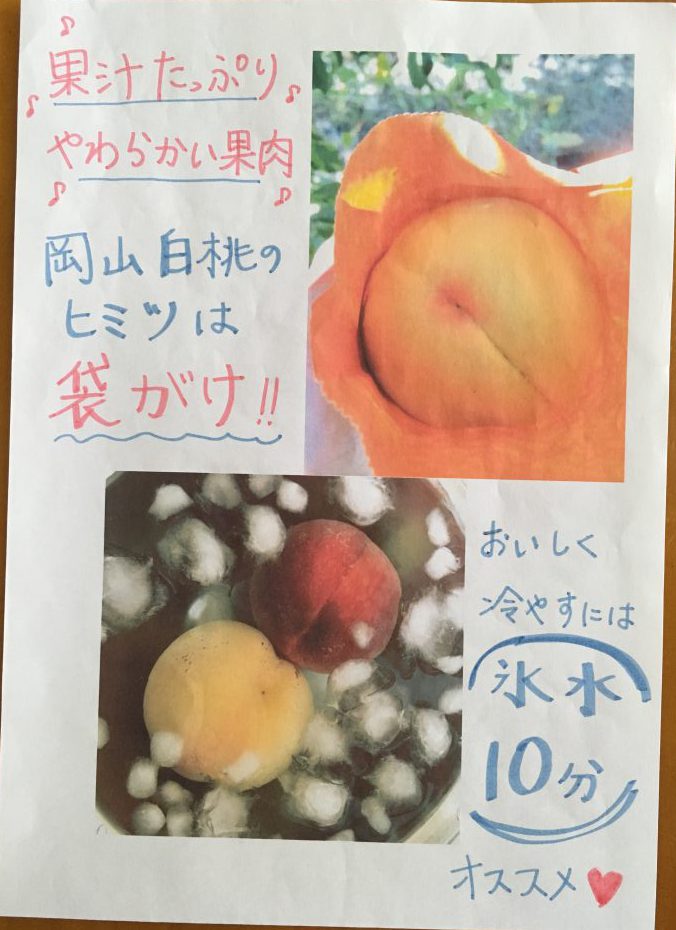 果汁たっぷり
やわらかい果肉
岡山白桃の
ヒミツは
袋がけ!!
おいしく
冷やすには
氷水
10分
オススメ♥